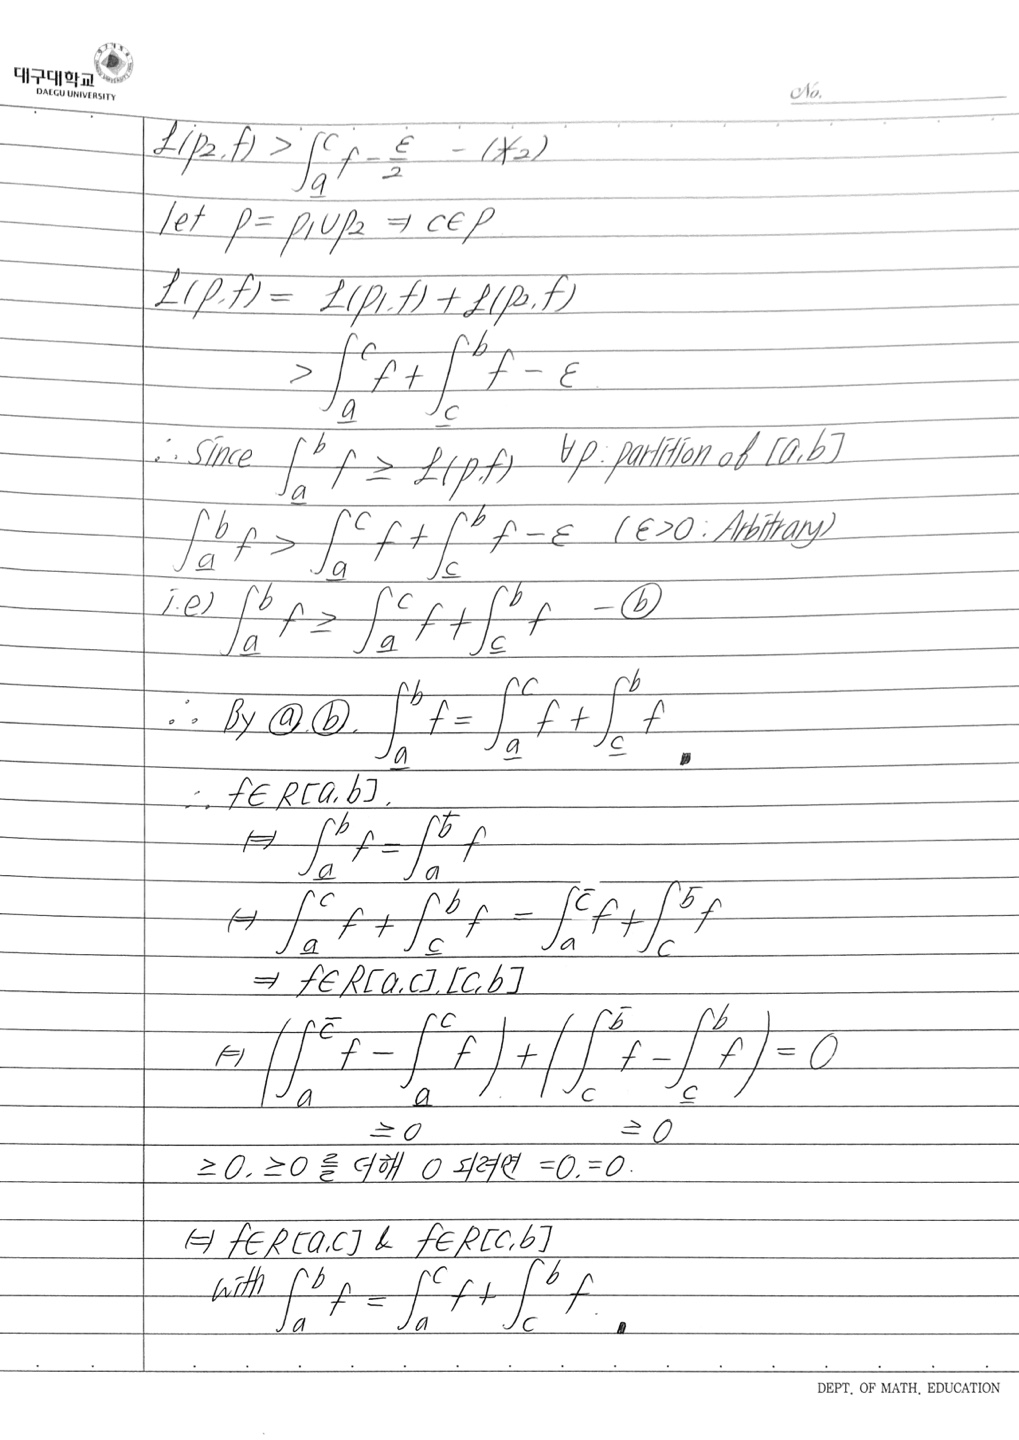 대구대학교
DAEGU UNIVERSITY
No.
£(p₂,f) > ∫_a̲^c f - ε/2 - (*₂)
let p = p₁∪p₂ ⇒ c∈p
£(p,f) = £(p₁,f) + £(p₂,f)
> ∫_a̲^c f + ∫_c̲^b f - ε
∴ since ∫_a̲^b f ≥ £(p,f) ∀p: partition of [a,b]
∫_a̲^b f > ∫_a̲^c f + ∫_c̲^b f - ε (ε>0 : Arbitrary)
i.e) ∫_a̲^b f ≥ ∫_a̲^c f + ∫_c̲^b f - ⓑ
∴ By ⓐ,ⓑ. ∫_a̲^b f = ∫_a̲^c f + ∫_c̲^b f
∴ f∈R[a,b].
⇔ ∫_a̲^b f = ∫_a^b̅ f
⇔ ∫_a̲^c f + ∫_c̲^b f = ∫_a^c̅ f + ∫_c^b̅ f
⇒ f∈R[a,c],[c,b]
⇔ (∫_a^c̅ f - ∫_a̲^c f) + (∫_c^b̅ f - ∫_c̲^b f) = 0
≥0 ≥0
≥0, ≥0 를 더해 0 되려면 =0, =0.
⇔ f∈R[a,c] & f∈R[c,b]
with ∫_a^b f = ∫_a^c f + ∫_c^b f.
DEPT. OF MATH. EDUCATION